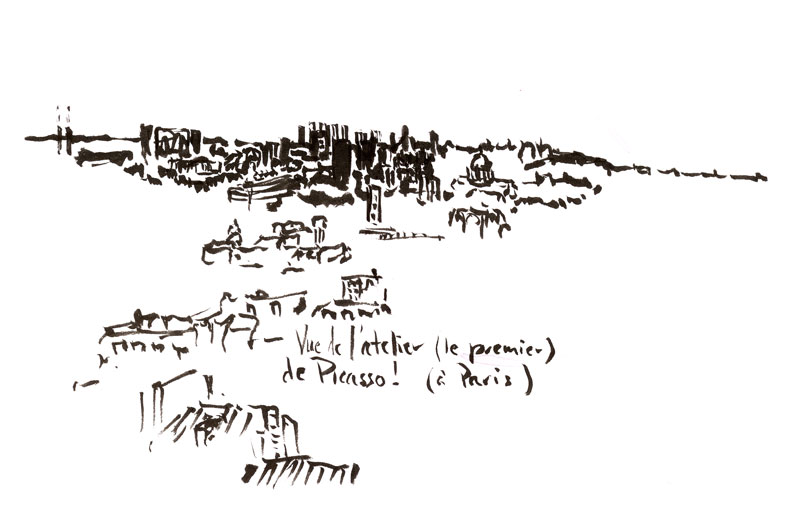 Vue de l'atelier (le premier)
de Picasso! (à Paris)